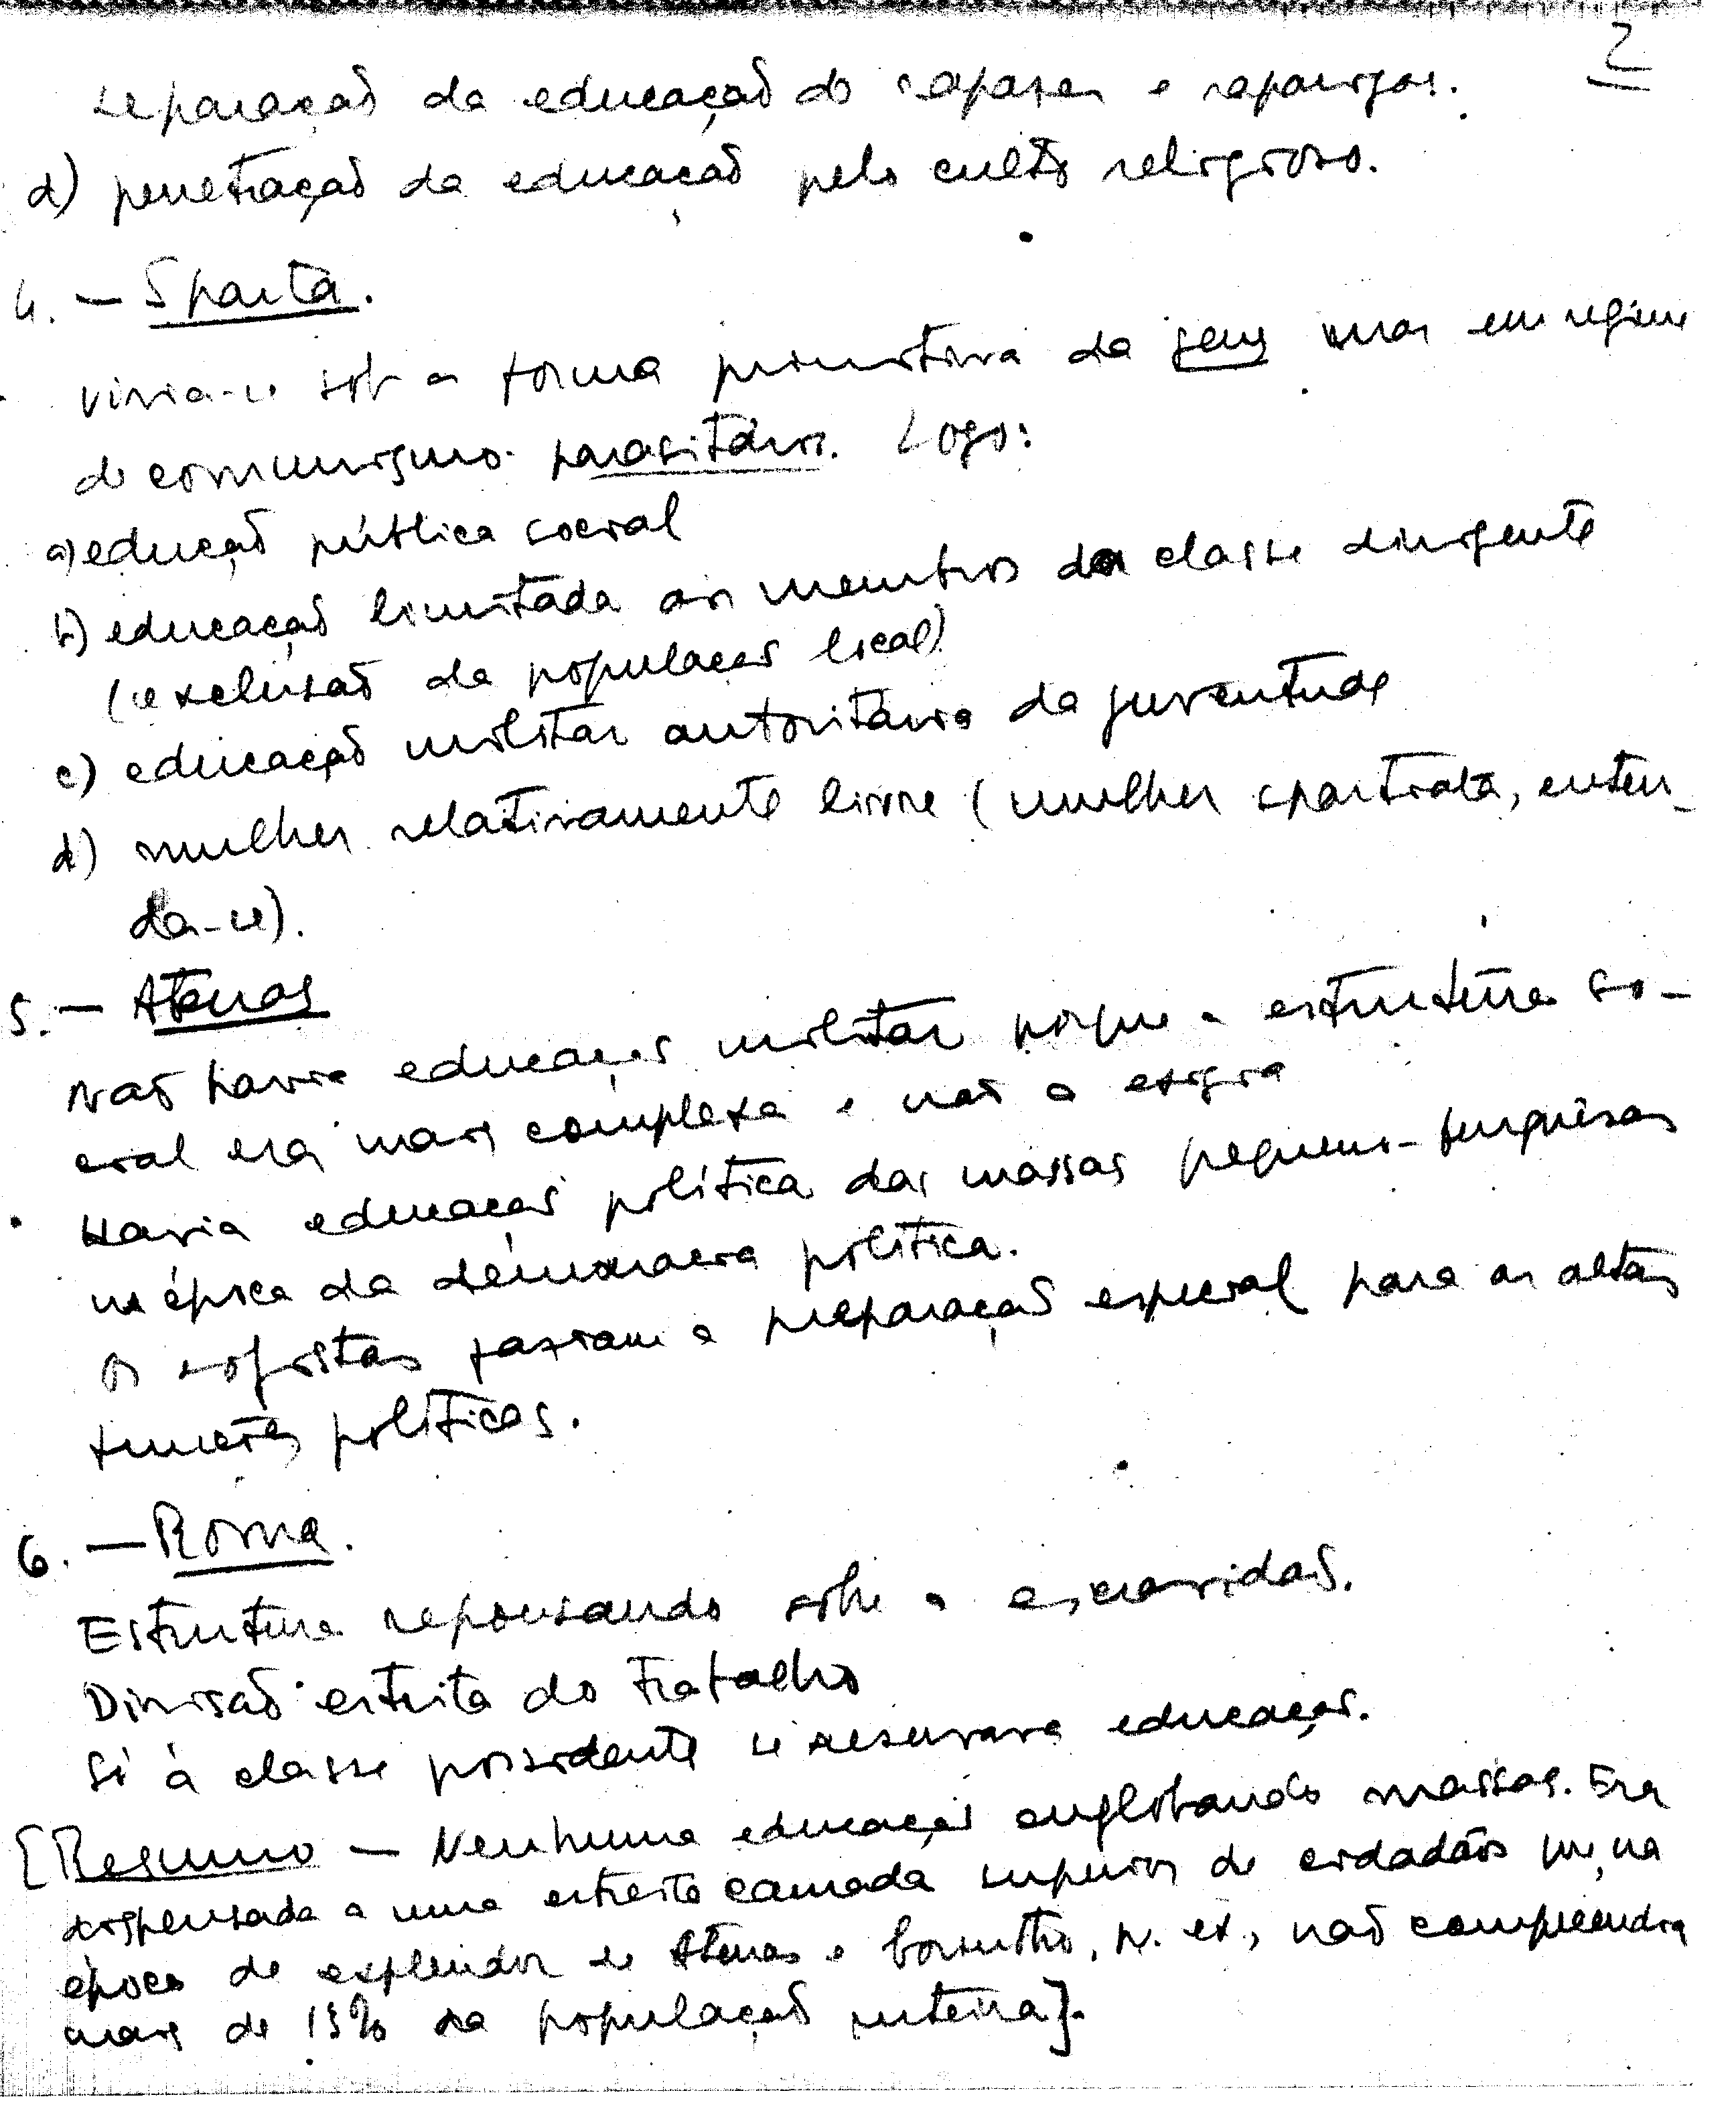 2
separação da educação de rapazes e raparigas.
d) penetração da educação pelo culto religioso.
4. — Sparta.
vivia-se sob a forma primitiva da gens mas em regime
de comunismo parasitário. Logo:
a) educação pública social
b) educação limitada aos membros da classe dirigente
(exclusão da população local)
c) educação militar autoritária da juventude
d) mulher relativamente livre (mulher spartiata, enten-
da-se).
5. — Atenas
Não havia educação militar porque a estrutura so-
cial era mais complexa e não a exigia
Havia educação política das massas pequeno-burguêsas
na época da democracia política.
Os sofistas faziam a preparação especial para as altas
funções políticas.
6. — Roma.
Estrutura repousando sobre a escravidão.
Divisão estrita do trabalho
Só à classe possidente se reservava educação.
[Resumo — Nenhuma educação englobando massas. Era
dispensada a uma estreita camada superior de cidadãos que, na
época de esplendor de Atenas e Corintho, p. ex., não compreendia
mais de 15% da população inteira].